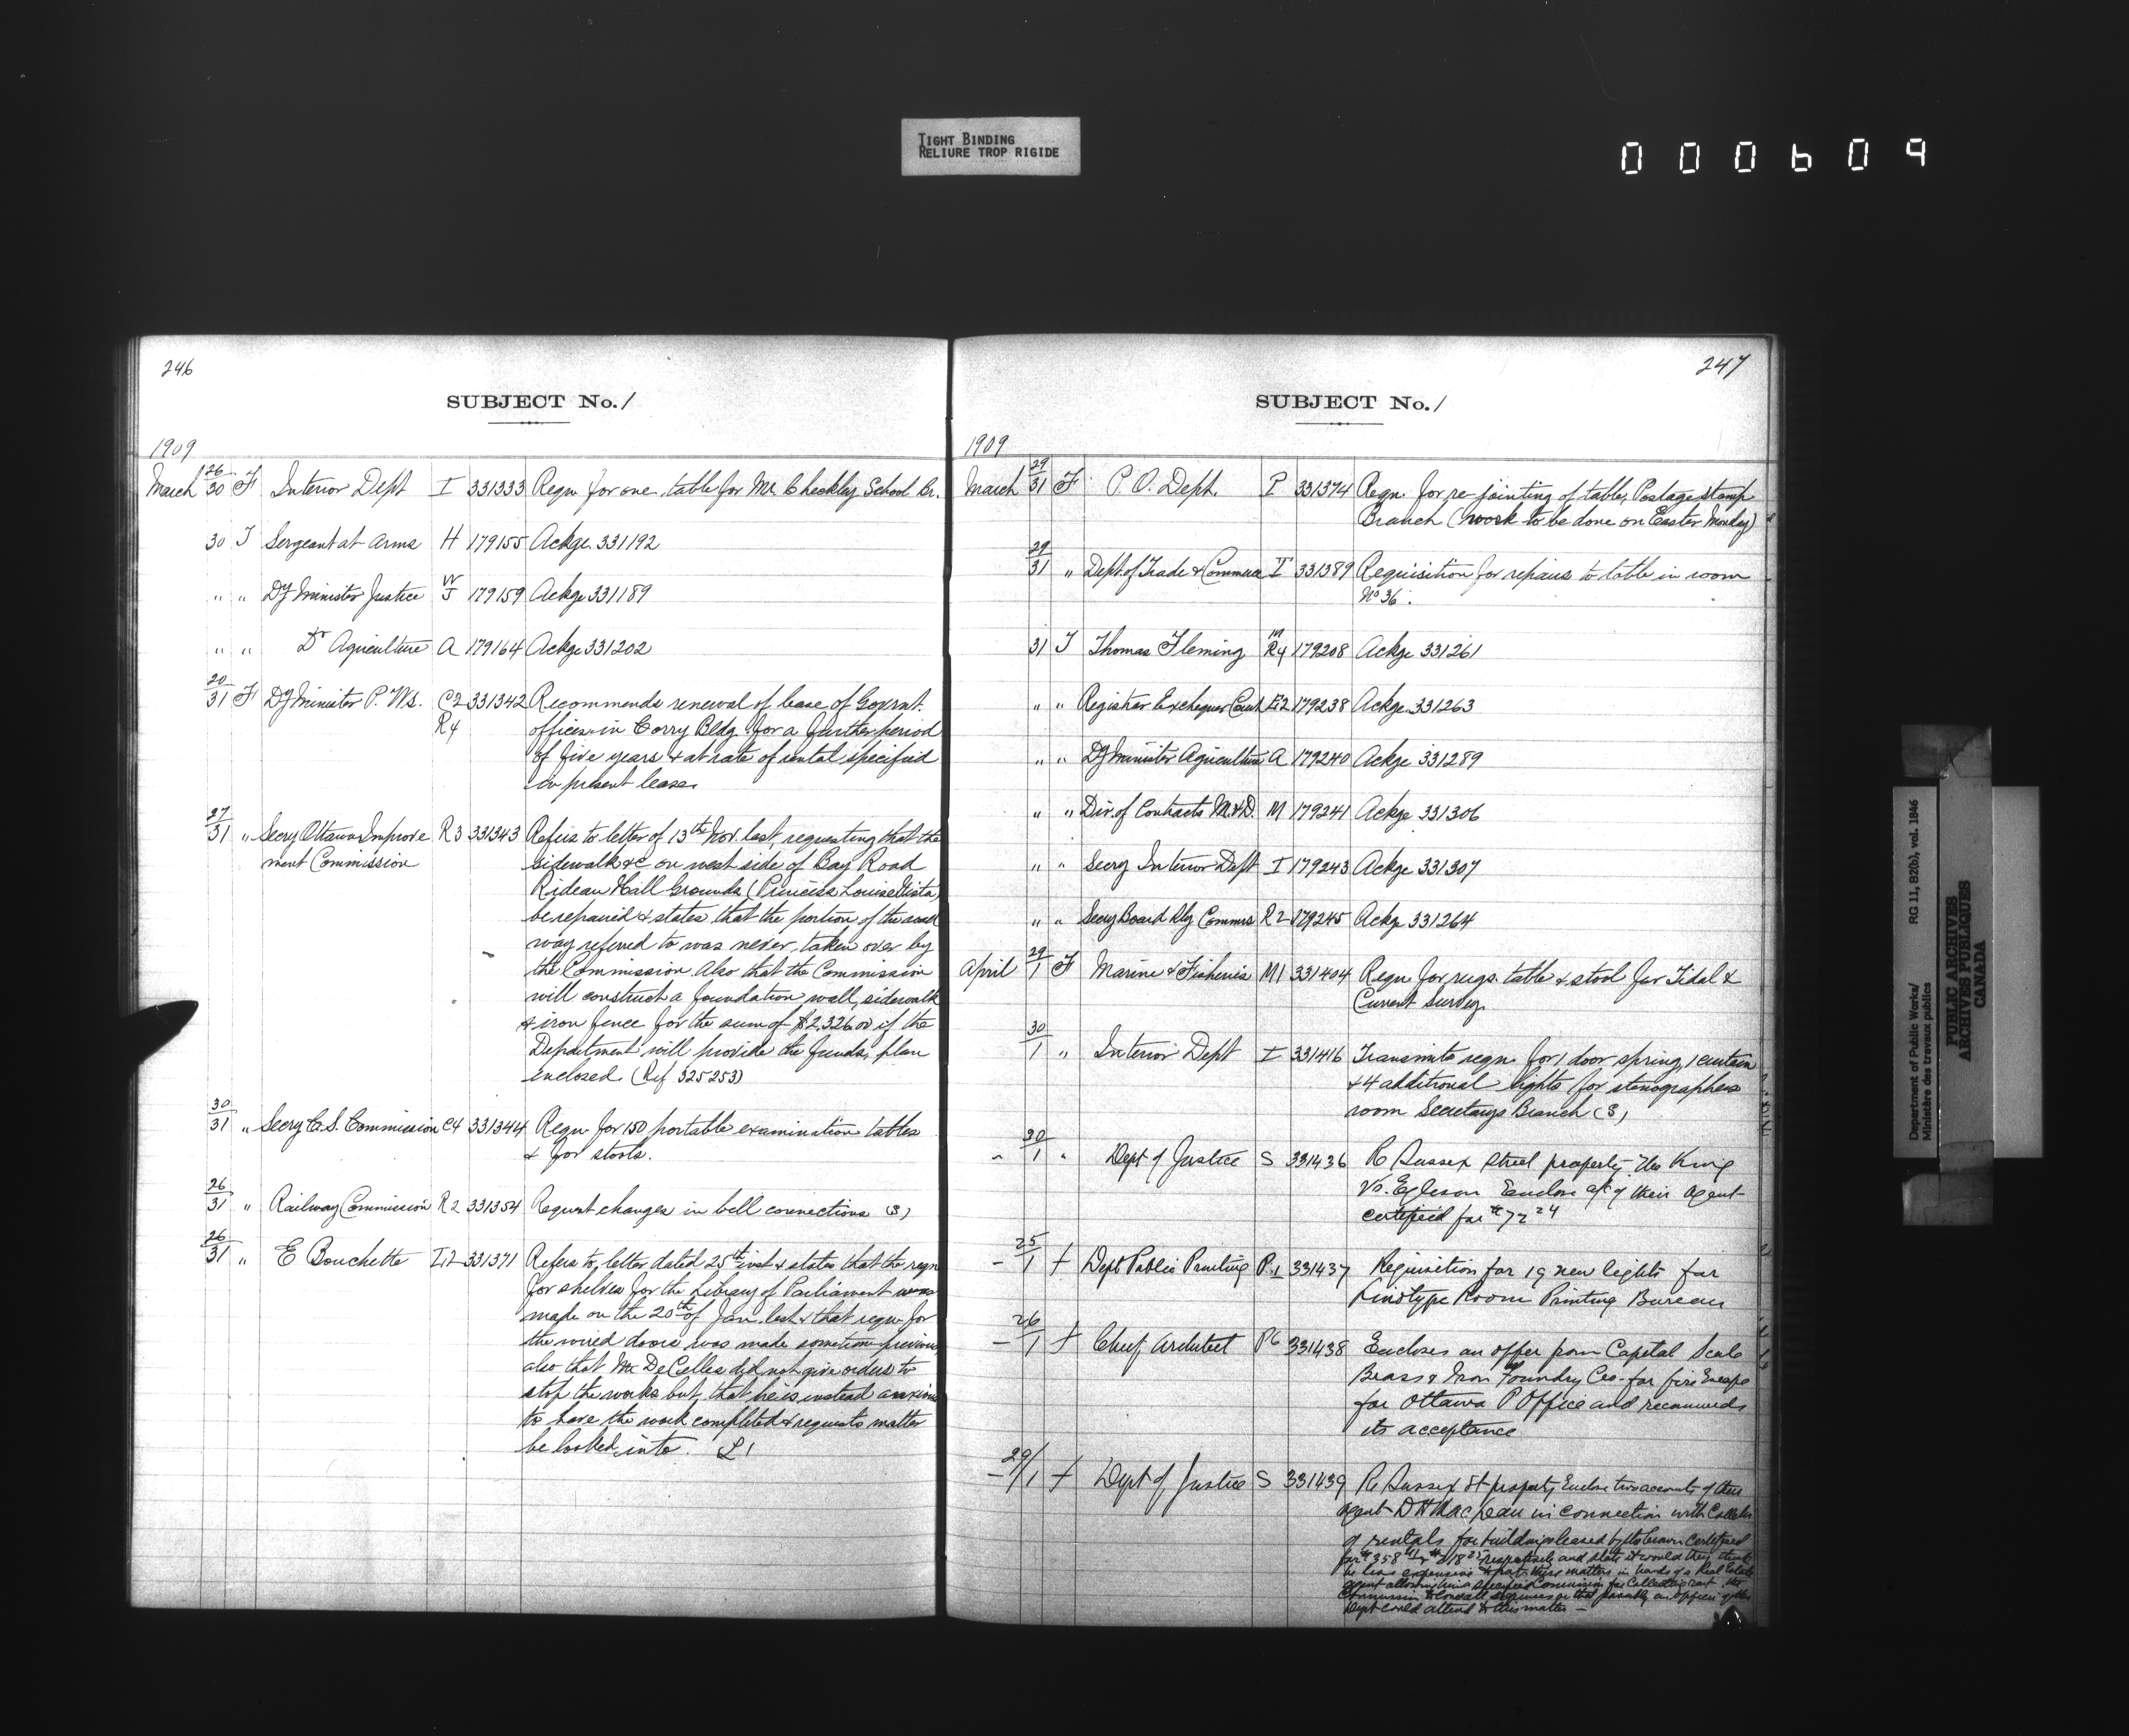 TIGHT BINDING
RELIURE TROP RIGIDE
000609
246
SUBJECT No. 1
1909
March 26/30 F Interior Dept I 331333 Reqn for one table for Mr. Checkley School Br.
30 T Sergeant at Arms H 179155 Ackge 331192
" " Dy Minister Justice J 179159 Ackge 331189
" " Do Agriculture A 179164 Ackge 331202
20/31 F Dy Minister P. Wks. C2 331342 Recommends renewal of lease of Govrnt.
R4 offices in Corry Bldg. for a further period
of five years & at rate of rental specified
in present lease.
27/31 " Secry Ottawa Improve R3 331343 Refers to letter of 13th Nov. last, requesting that the
ment Commission sidewalk &c on west side of Bay Road
Rideau Hall Grounds (Princess Louise Vista)
be repaired & states that the portion of the road
way referred to was never taken over by
the Commission. Also that the Commission
will construct a foundation wall, sidewalk
& iron fence for the sum of $2,326.00 if the
Department will provide the funds, plan
enclosed. (Ref 325253)
30/31 " Secry C. S. Commission C4 331344 Reqn for 150 portable examination tables
& for stools.
26/31 " Railway Commission R2 331354 Request changes in bell connections (S)
26/31 " E Bouchette 331371 Refers to letter dated 25th inst & states that the reqn
for shelves for the Library of Parliament was
made on the 20th of Jan. last & that reqn for
the wired doors was made sometime previous
also that Mr DeCelles did not give orders to
stop the works but that he is instead anxious
to have the work completed & requests matter
be looked into. L1
247
SUBJECT No. 1
1909
March 29/31 F P. O. Dept. P 331374 Reqn. for re-jointing of table, Postage stamp
Branch (work to be done on Easter Monday)
29/31 " Dept. of Trade & Commerce T 331389 Requisition for repairs to table in room
No 36.
31 T Thomas Fleming R4 179208 Ackge 331261
" " Registrar Exchequer Court E2 179238 Ackge 331263
" " Dy Minister Agriculture A 179240 Ackge 331289
" " Div. of Contracts M. & D. M 179241 Ackge 331306
" " Secry Interior Dept I 179243 Ackge 331307
" " Secry Board Rly Commrs R2 179245 Ackge 331264
April 29/1 F Marine & Fisheries M1 331404 Reqn for rugs, table & stool for Tidal &
Current Survey.
30/1 " Interior Dept I 331416 Transmits reqn. for 1 door spring, 1 curtain
& 4 additional lights for stenographers
room Secretarys Branch (S)
" 30/1 " Dept of Justice S 331436 Re Sussex Street property The King
Vs. Egleson Enclose a/c of their Agent
certified for $72.24
- 25/1 f Dept Public Printing P.1 331437 Requisition for 19 new lights for
Linotype Room Printing Bureau
- 26/1 f Chief Architect P6 331438 Encloses an offer from Capital Scale
Brass & Iron Foundry Co. for fire Escape
for Ottawa P Office and recommends
its acceptance
- 29/1 f Dept of Justice S 331439 Re Sussex St property Enclose two accounts of their
agent D H MacLean in connection with Collection
of rentals for buildings leased by the Crown Certified
for $358 & $218 respectively and state it would they think
be less expensive to put these matters in hands of a Real Estate
agent allowing him a specified Commission for Collecting rent the
Commission to Cover all expenses or that possibly an Officer of the
Dept could attend to this matter -
Department of Public Works/
Ministère des travaux publics
RG 11, B2(b), vol. 1846
PUBLIC ARCHIVES
ARCHIVES PUBLIQUES
CANADA